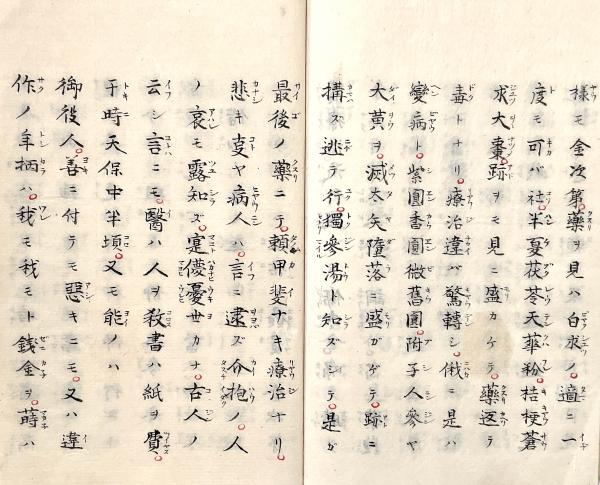 様モ金次第藥ヲ見ハ白朮ノ適ニ一
度モ可バ社半夏茯苓天華粉桔梗蒼
求大棗跡ヲモ見ニ盛カケテ藥返テ
毒トナリ療治違バ驚轉シ俄ニ是ハ
變病ト紫圓香圓微舊圓附子人參ヤ
大黄ヲ滅太矢墮落ニ盛ガゲテ跡ニ
構ズ逃テ行獨參湯ト知ズシテ是ガ
最後ノ藥ニテ頼甲斐ナキ療治ナリ
悲キ叓ヤ病人ハ言ニ逮ズ介抱ノ人
ノ哀モ露知ズ寔儚憂世カナ古人ノ
云シ言ニモ醫ハ人ヲ殺書ハ紙ヲ費
于時天保中半頃又モ能ノハ
御役人善ニ付テモ惡キニモ又ハ違
作ノ年柄ハ我モ我モト錢金ヲ蒔ハ